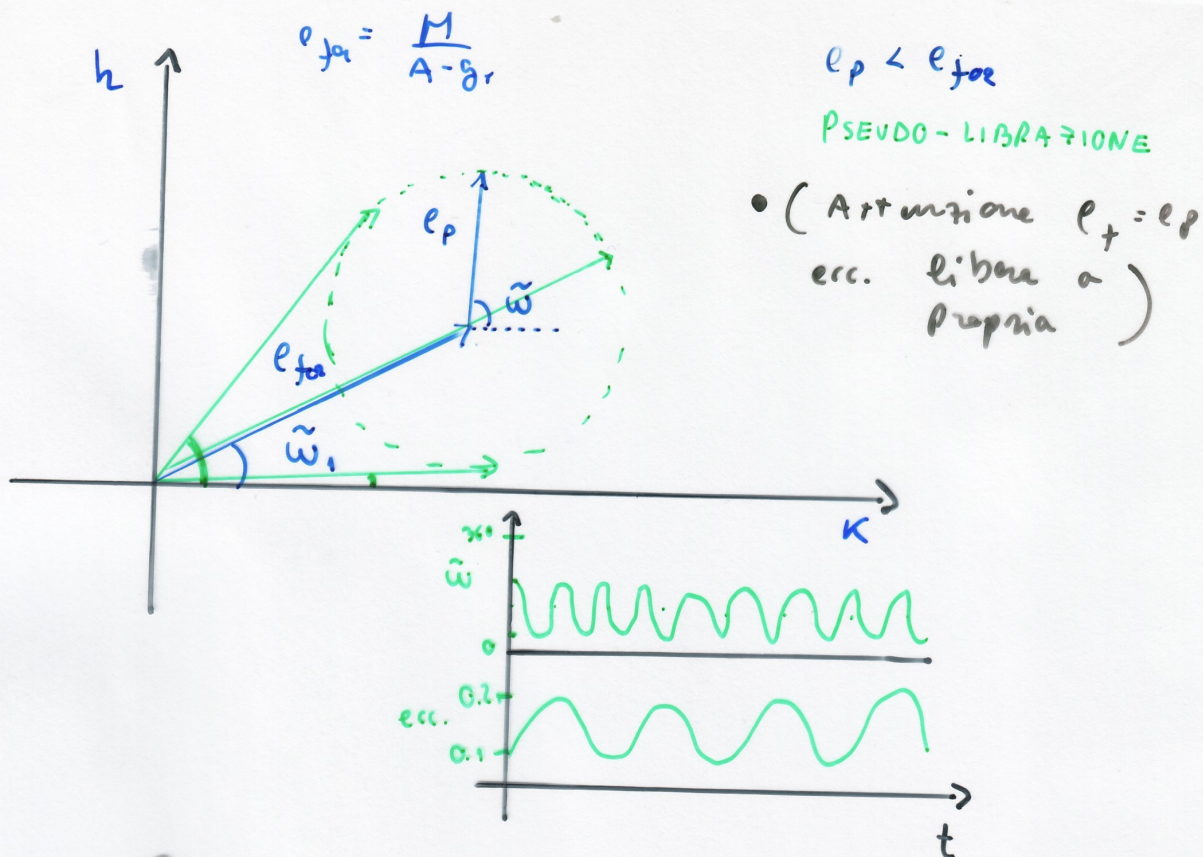 e_for = M / (A - g_1)
h
e_p < e_for
PSEUDO-LIBRAZIONE
• (Attenzione e_f = e_p
ecc. libera o
propria)
e_p
ω̃
e_for
ω̃_1
K
360
ω̃
0
0.2
ecc.
0.1
t